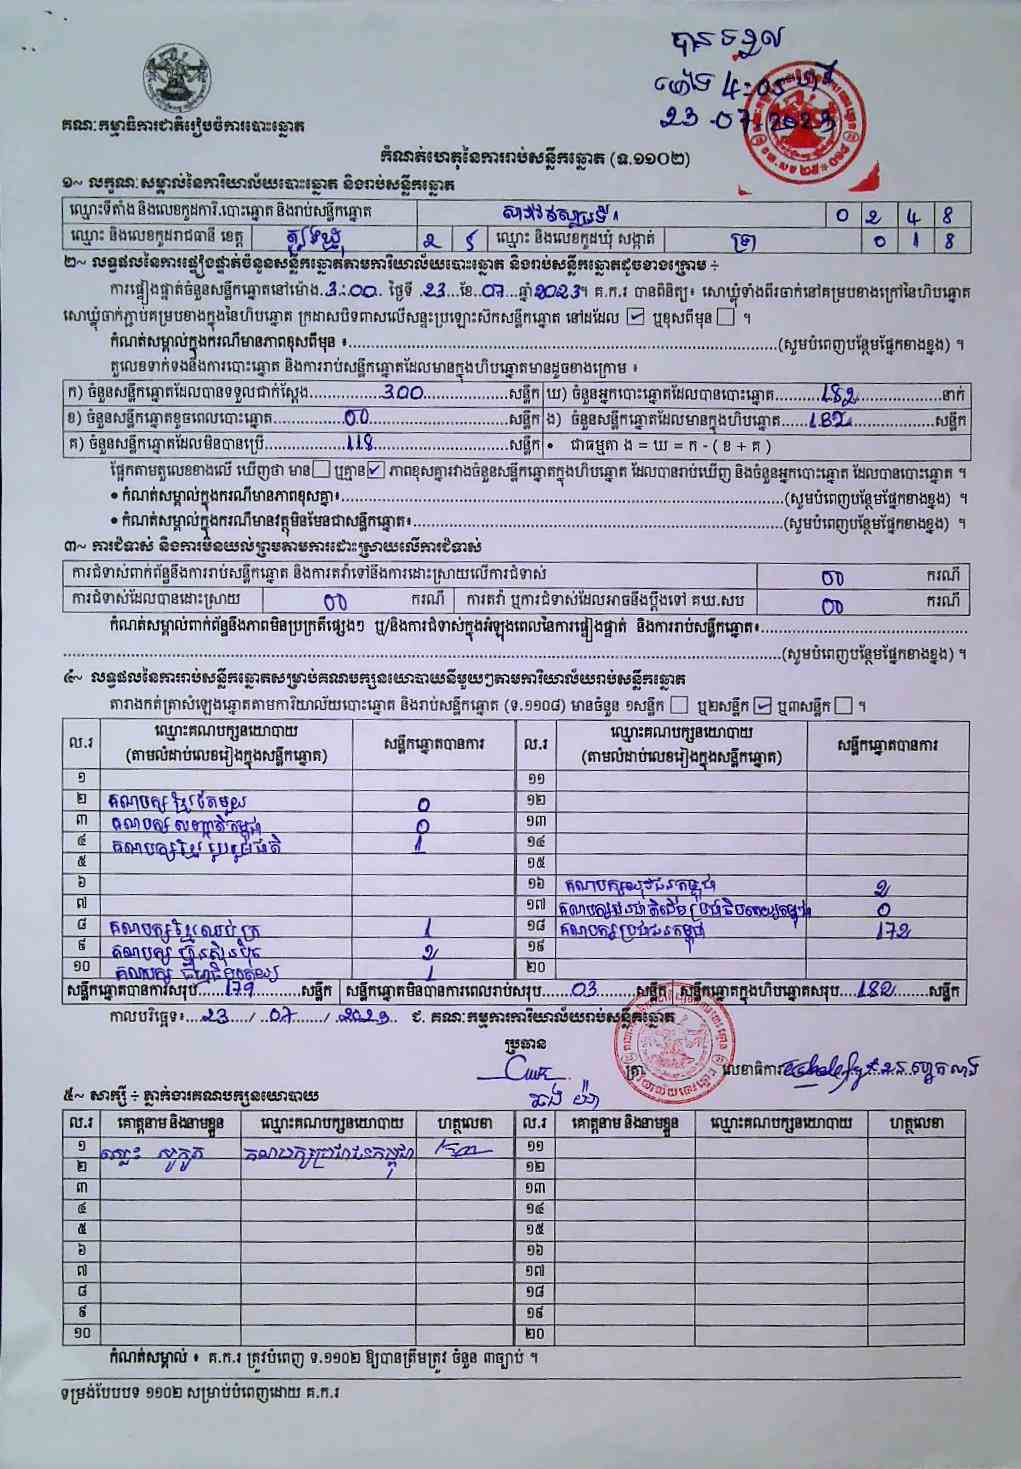 បានទទួល
ម៉ោង 4:05 នាទី
23-07-2023
គណៈកម្មាធិការជាតិរៀបចំការបោះឆ្នោត
កំណត់ហេតុនៃការរាប់សន្លឹកឆ្នោត (ទ.១១០២)
១~ លក្ខណៈសម្គាល់នៃការិយាល័យបោះឆ្នោត និងរាប់សន្លឹកឆ្នោត
ឈ្មោះទីតាំង និងលេខកូដការិ.បោះឆ្នោត និងរាប់សន្លឹកឆ្នោត 0 2 4 8
ឈ្មោះ និងលេខកូដរាជធានី ខេត្ត ត្បូងឃ្មុំ 2 5 ឈ្មោះ និងលេខកូដឃុំ សង្កាត់ ទ្រា 0 1 8
២~ លទ្ធផលនៃការផ្ទៀងផ្ទាត់ចំនួនសន្លឹកឆ្នោតតាមការិយាល័យបោះឆ្នោត និងរាប់សន្លឹកឆ្នោតដូចខាងក្រោម ÷
ការផ្ទៀងផ្ទាត់ចំនួនសន្លឹកឆ្នោតនៅម៉ោង.3:00. ថ្ងៃទី .23...ខែ.07...ឆ្នាំ2023។ គ.ក.រ បានពិនិត្យ៖ សោឃ្លុំទាំងពីរចាក់នៅគម្របខាងក្រៅនៃហិបឆ្នោត
សោឃ្លុំចាក់ភ្ជាប់គម្របខាងក្នុងនៃហិបឆ្នោត ក្រដាសបិទពាសលើសន្ទះប្រឡោះស៊កសន្លឹកឆ្នោត នៅដដែល ☑ ឬខុសពីមុន ☐ ។
កំណត់សម្គាល់ក្នុងករណីមានភាពខុសពីមុន ៖......(សូមបំពេញបន្ថែមផ្នែកខាងខ្នង) ។
តួលេខទាក់ទងនឹងការបោះឆ្នោត និងការរាប់សន្លឹកឆ្នោតដែលមានក្នុងហិបឆ្នោតមានដូចខាងក្រោម ៖
ក) ចំនួនសន្លឹកឆ្នោតដែលបានទទួលជាក់ស្តែង......300......សន្លឹក ឃ) ចំនួនអ្នកបោះឆ្នោតដែលបានបោះឆ្នោត......182......នាក់
ខ) ចំនួនសន្លឹកឆ្នោតខូចពេលបោះឆ្នោត......00......សន្លឹក ង) ចំនួនសន្លឹកឆ្នោតដែលមានក្នុងហិបឆ្នោត......182......សន្លឹក
គ) ចំនួនសន្លឹកឆ្នោតដែលមិនបានប្រើ......118......សន្លឹក • ជាធម្មតា ង = ឃ = ក - ( ខ + គ )
ផ្អែកតាមតួលេខខាងលើ ឃើញថា មាន ☐ ឬគ្មាន ☑ ភាពខុសគ្នារវាងចំនួនសន្លឹកឆ្នោតក្នុងហិបឆ្នោត ដែលបានរាប់ឃើញ និងចំនួនអ្នកបោះឆ្នោត ដែលបានបោះឆ្នោត ។
• កំណត់សម្គាល់ក្នុងករណីមានភាពខុសគ្នា៖......(សូមបំពេញបន្ថែមផ្នែកខាងខ្នង) ។
• កំណត់សម្គាល់ក្នុងករណីមានវត្ថុមិនមែនជាសន្លឹកឆ្នោត៖......(សូមបំពេញបន្ថែមផ្នែកខាងខ្នង) ។
៣~ ការជំទាស់ និងការមិនយល់ព្រមតាមការដោះស្រាយលើការជំទាស់
ការជំទាស់ពាក់ព័ន្ធនឹងការរាប់សន្លឹកឆ្នោត និងការតវ៉ាទៅនឹងការដោះស្រាយលើការជំទាស់ 00 ករណី
ការជំទាស់ដែលបានដោះស្រាយ 00 ករណី ការតវ៉ា ឬការជំទាស់ដែលអាចនឹងប្តឹងទៅ គឃ.សប 00 ករណី
កំណត់សម្គាល់ពាក់ព័ន្ធនឹងភាពមិនប្រក្រតីផ្សេងៗ ឬ/និងការជំទាស់ក្នុងអំឡុងពេលនៃការផ្ទៀងផ្ទាត់ និងការរាប់សន្លឹកឆ្នោត៖......
......(សូមបំពេញបន្ថែមផ្នែកខាងខ្នង) ។
៤~ លទ្ធផលនៃការរាប់សន្លឹកឆ្នោតសម្រាប់គណបក្សនយោបាយនីមួយៗតាមការិយាល័យរាប់សន្លឹកឆ្នោត
តារាងកត់ត្រាសំឡេងឆ្នោតតាមការិយាល័យបោះឆ្នោត និងរាប់សន្លឹកឆ្នោត (ទ.១១០៨) មានចំនួន ១សន្លឹក ☐ ឬ២សន្លឹក ☑ ឬ៣សន្លឹក ☐ ។
ល.រ ឈ្មោះគណបក្សនយោបាយ (តាមលំដាប់លេខរៀងក្នុងសន្លឹកឆ្នោត) សន្លឹកឆ្នោតបានការ ល.រ ឈ្មោះគណបក្សនយោបាយ (តាមលំដាប់លេខរៀងក្នុងសន្លឹកឆ្នោត) សន្លឹកឆ្នោតបានការ
១ ១១
២ គណបក្ស ខ្មែរតែមួយ 0 ១២
៣ គណបក្ស សញ្ជាតិកម្ពុជា 0 ១៣
៤ គណបក្សខ្មែររួបរួមជាតិ 1 ១៤
៥ ១៥
៦ ១៦ គណបក្សយុវជនកម្ពុជា 2
៧ ១៧ គណបក្សជនជាតិដើមប្រជាធិបតេយ្យកម្ពុជា 0
៨ គណបក្សខ្មែរឈប់ក្រ 1 ១៨ គណបក្សប្រជាជនកម្ពុជា 172
៩ គណបក្ស ហ៊្វុនស៊ិនប៉ិច 2 ១៩
១០ គណបក្ស ធម្មាធិបតេយ្យ 1 ២០
សន្លឹកឆ្នោតបានការសរុប......179......សន្លឹក សន្លឹកឆ្នោតមិនបានការពេលរាប់សរុប......03......សន្លឹក សន្លឹកឆ្នោតក្នុងហិបឆ្នោតសរុប....182......សន្លឹក
កាលបរិច្ឆេទ៖....23..../...07...../...2023.. ជ. គណៈកម្មការការិយាល័យរាប់សន្លឹកឆ្នោត
ប្រធាន
ត្រា លេខាធិការ
៥~ សាក្សី ÷ ភ្នាក់ងារគណបក្សនយោបាយ
ល.រ គោត្តនាម និងនាមខ្លួន ឈ្មោះគណបក្សនយោបាយ ហត្ថលេខា ល.រ គោត្តនាម និងនាមខ្លួន ឈ្មោះគណបក្សនយោបាយ ហត្ថលេខា
១ គណបក្សប្រជាជនកម្ពុជា ១១
២ ១២
៣ ១៣
៤ ១៤
៥ ១៥
៦ ១៦
៧ ១៧
៨ ១៨
៩ ១៩
១០ ២០
កំណត់សម្គាល់ ៖ គ.ក.រ ត្រូវបំពេញ ទ.១១០២ ឱ្យបានត្រឹមត្រូវ ចំនួន ៣ច្បាប់ ។
ទម្រង់បែបបទ ១១០២ សម្រាប់បំពេញដោយ គ.ក.រ